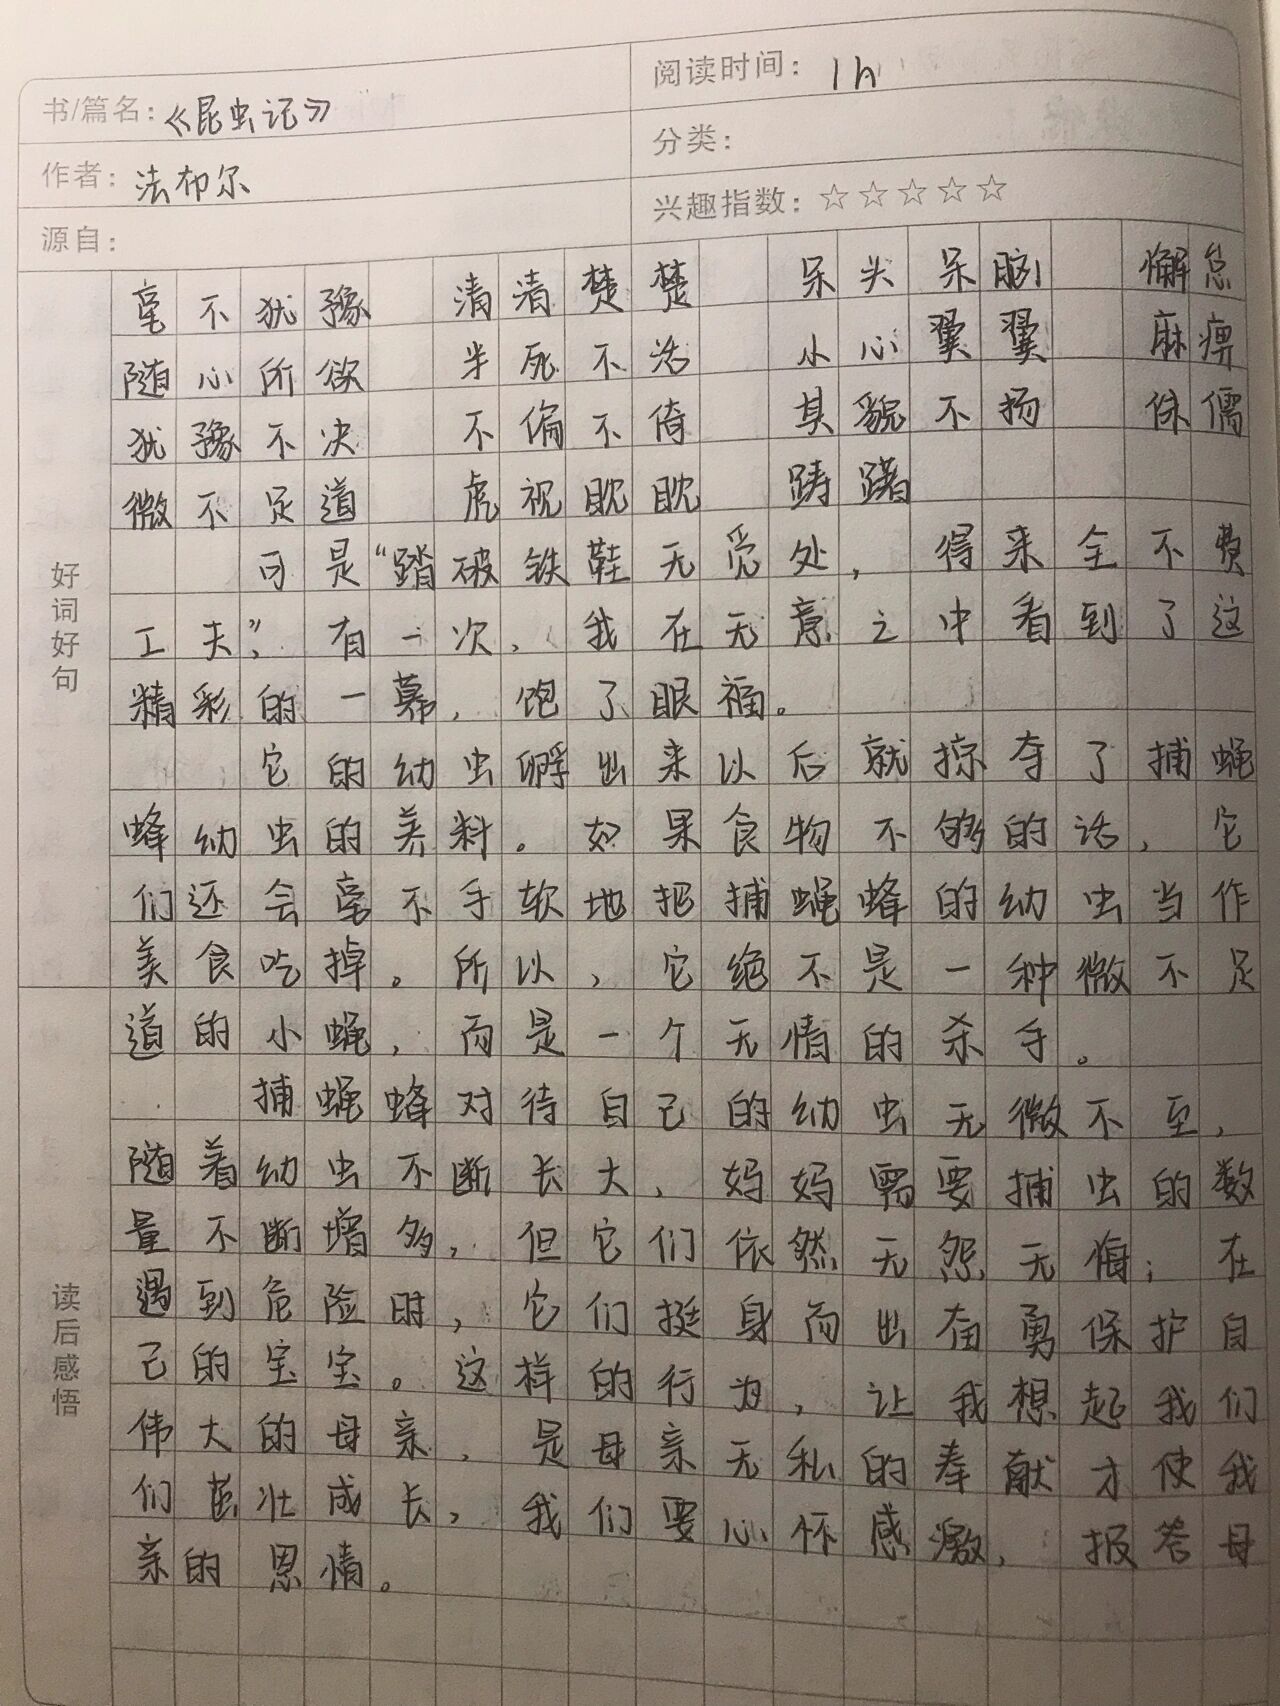 书/篇名：《昆虫记》
阅读时间：1h
作者：法布尔
分类：
源自：
兴趣指数：☆☆☆☆☆
好词好句
毫不犹豫 清清楚楚 呆头呆脑 懈怠
随心所欲 半死不活 小心翼翼 麻痹
犹豫不决 不偏不倚 其貌不扬 侏儒
微不足道 虎视眈眈 踌躇
可是“踏破铁鞋无觅处，得来全不费
工夫”，有一次，我在无意之中看到了这
精彩的一幕，饱了眼福。
它的幼虫孵出来以后就掠夺了捕蝇
蜂幼虫的养料。如果食物不够的话，它
们还会毫不手软地把捕蝇蜂的幼虫当作
美食吃掉。所以，它绝不是一种微不足
道的小蝇，而是一个无情的杀手。
读后感悟
捕蝇蜂对待自己的幼虫无微不至，
随着幼虫不断长大，妈妈需要捕虫的数
量不断增多，但它们依然无怨无悔；在
遇到危险时，它们挺身而出奋勇保护自
己的宝宝。这样的行为，让我想起我们
伟大的母亲，是母亲无私的奉献才使我
们茁壮成长，我们要心怀感激，报答母
亲的恩情。